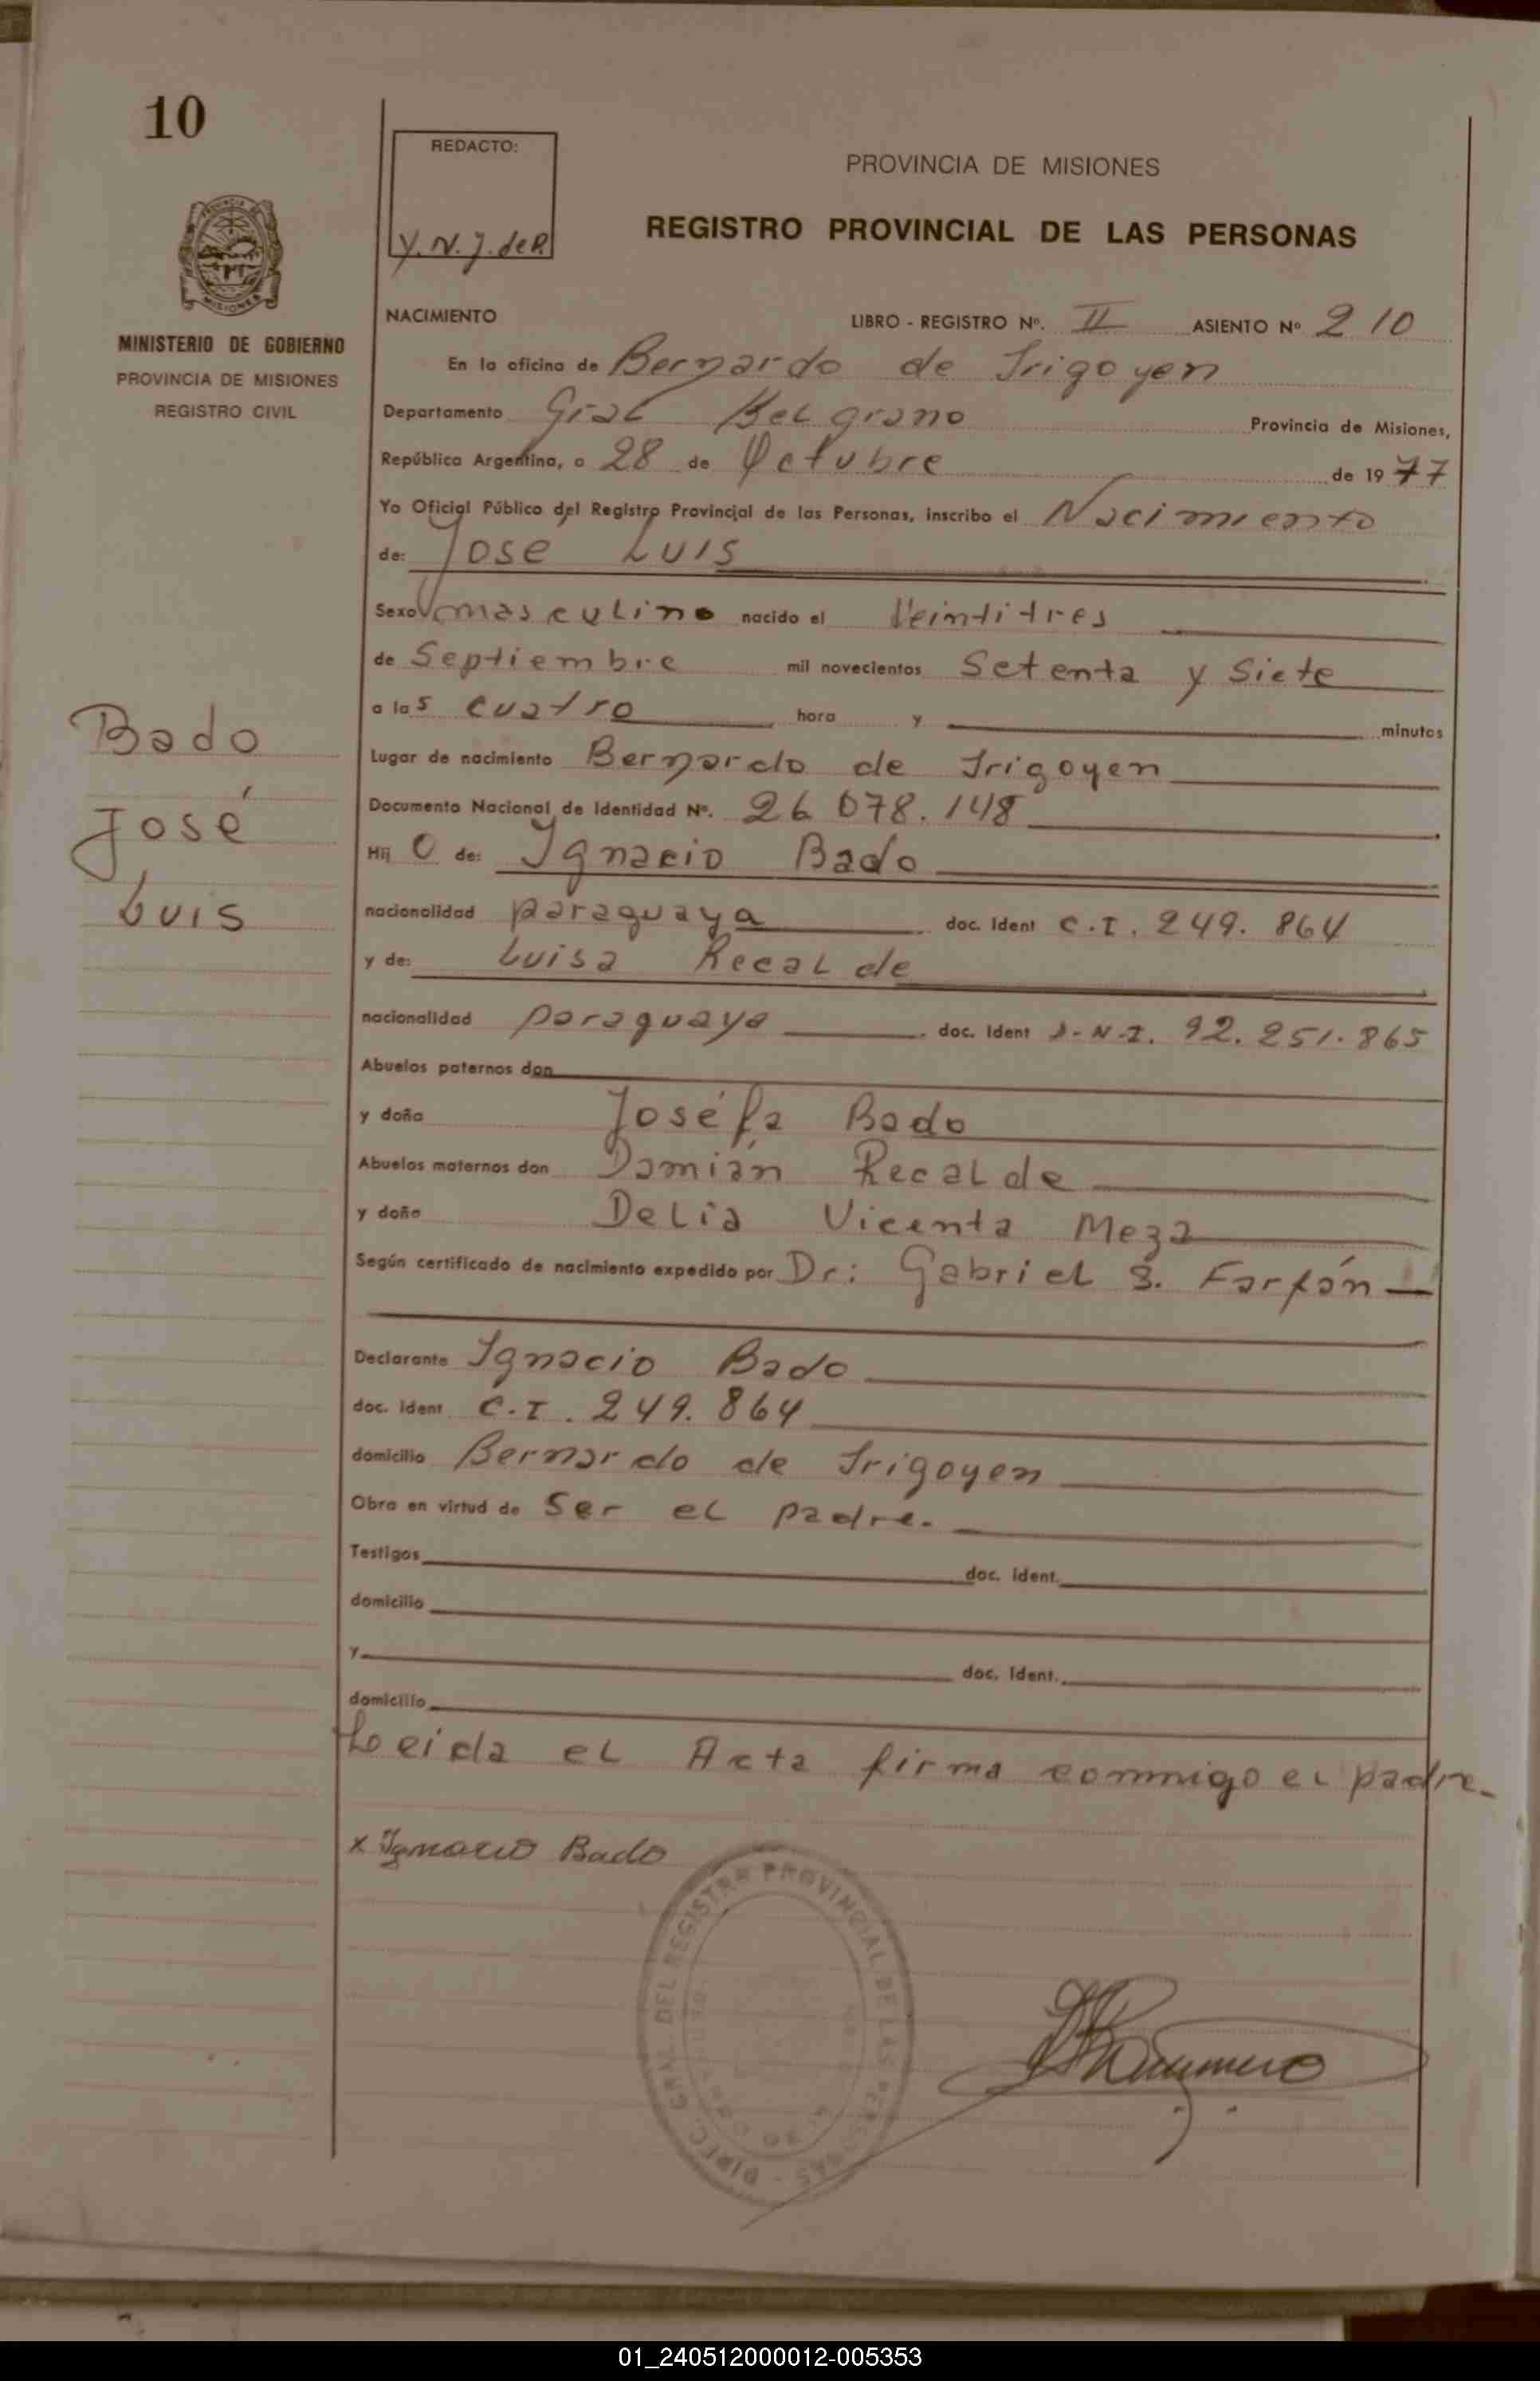 10
REDACTO:
Y. N. J. de R.
PROVINCIA DE MISIONES
REGISTRO PROVINCIAL DE LAS PERSONAS
MINISTERIO DE GOBIERNO
PROVINCIA DE MISIONES
REGISTRO CIVIL
NACIMIENTO LIBRO - REGISTRO Nº. II ASIENTO Nº 210
En la oficina de Bernardo de Irigoyen
Departamento Gral Belgrano Provincia de Misiones,
República Argentina, a 28 de Octubre de 1977
Yo Oficial Público del Registro Provincial de las Personas, inscribo el Nacimiento
de: Jose Luis
Sexo masculino nacido el Veintitres
de Septiembre mil novecientos Setenta y Siete
a las cuatro hora y minutos
Bado
José
Luis
Lugar de nacimiento Bernardo de Irigoyen
Documento Nacional de Identidad Nº. 26 078.148
Hij o de: Ignacio Bado
nacionalidad paraguaya doc. Ident C.I. 249.864
y de: Luisa Recalde
nacionalidad paraguaya doc. Ident D.N.I. 92.251.865
Abuelos paternos don
y doña Joséfa Bado
Abuelos maternos don Damián Recalde
y doña Delia Vicenta Meza
Según certificado de nacimiento expedido por Dr: Gabriel S. Farfán
Declarante Ignacio Bado
doc. ident C.I. 249.864
domicilio Bernardo de Irigoyen
Obra en virtud de Ser el padre.
Testigos doc. ident.
domicilio
y doc. ident.
domicilio
Leida el Acta firma conmigo el padre.
x Ignacio Bado
DIREC. GRAL. DEL REGISTRO PROVINCIAL DE LAS PERSONAS
01_240512000012-005353